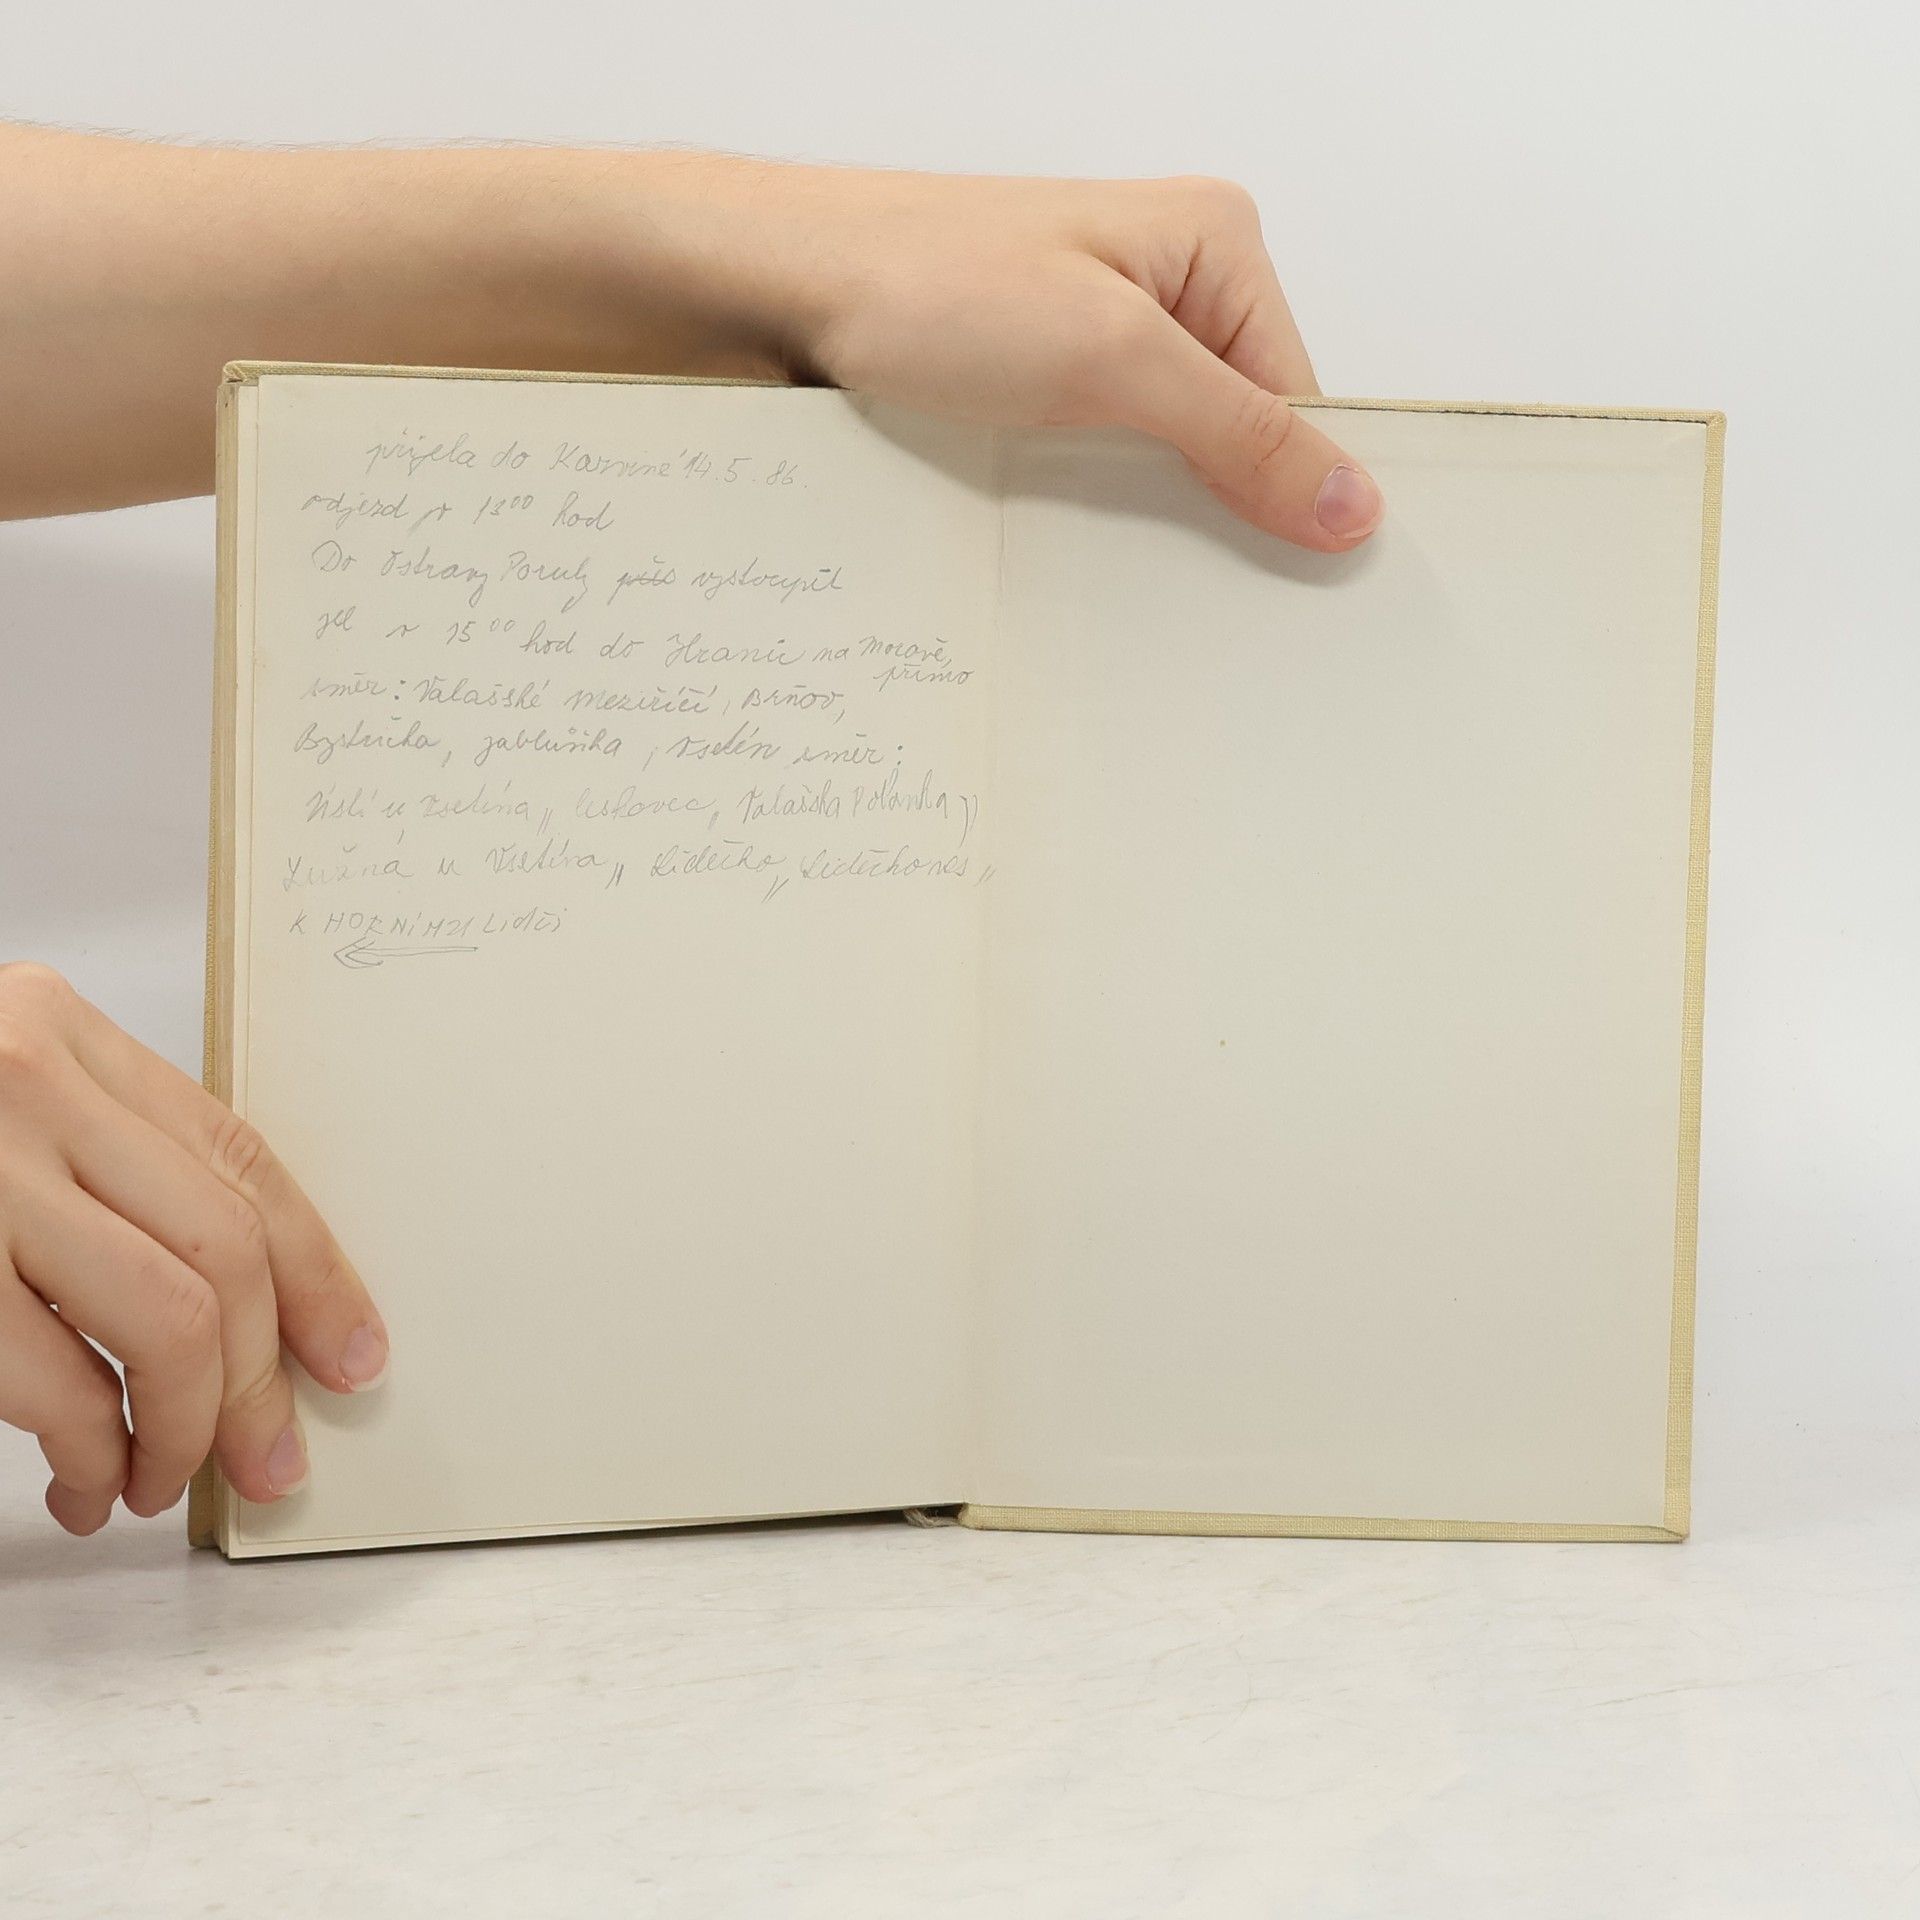 přijela do Karviné 14.5.86.
odjezd v 13⁰⁰ hod
Do Ostravy Poruby vystoupit
jel v 15⁰⁰ hod do Hranic na Moravě,
přímo
směr: Valašské Meziříčí, Brňov,
Bystřička, Jablůňka, Vsetín směr:
Ústí u Vsetína,, Leskovec,, Valašská Polanka,,
Lužná u Vsetína,, Lidečko,, Lidečko ves,,
K HORNÍMU Lidči